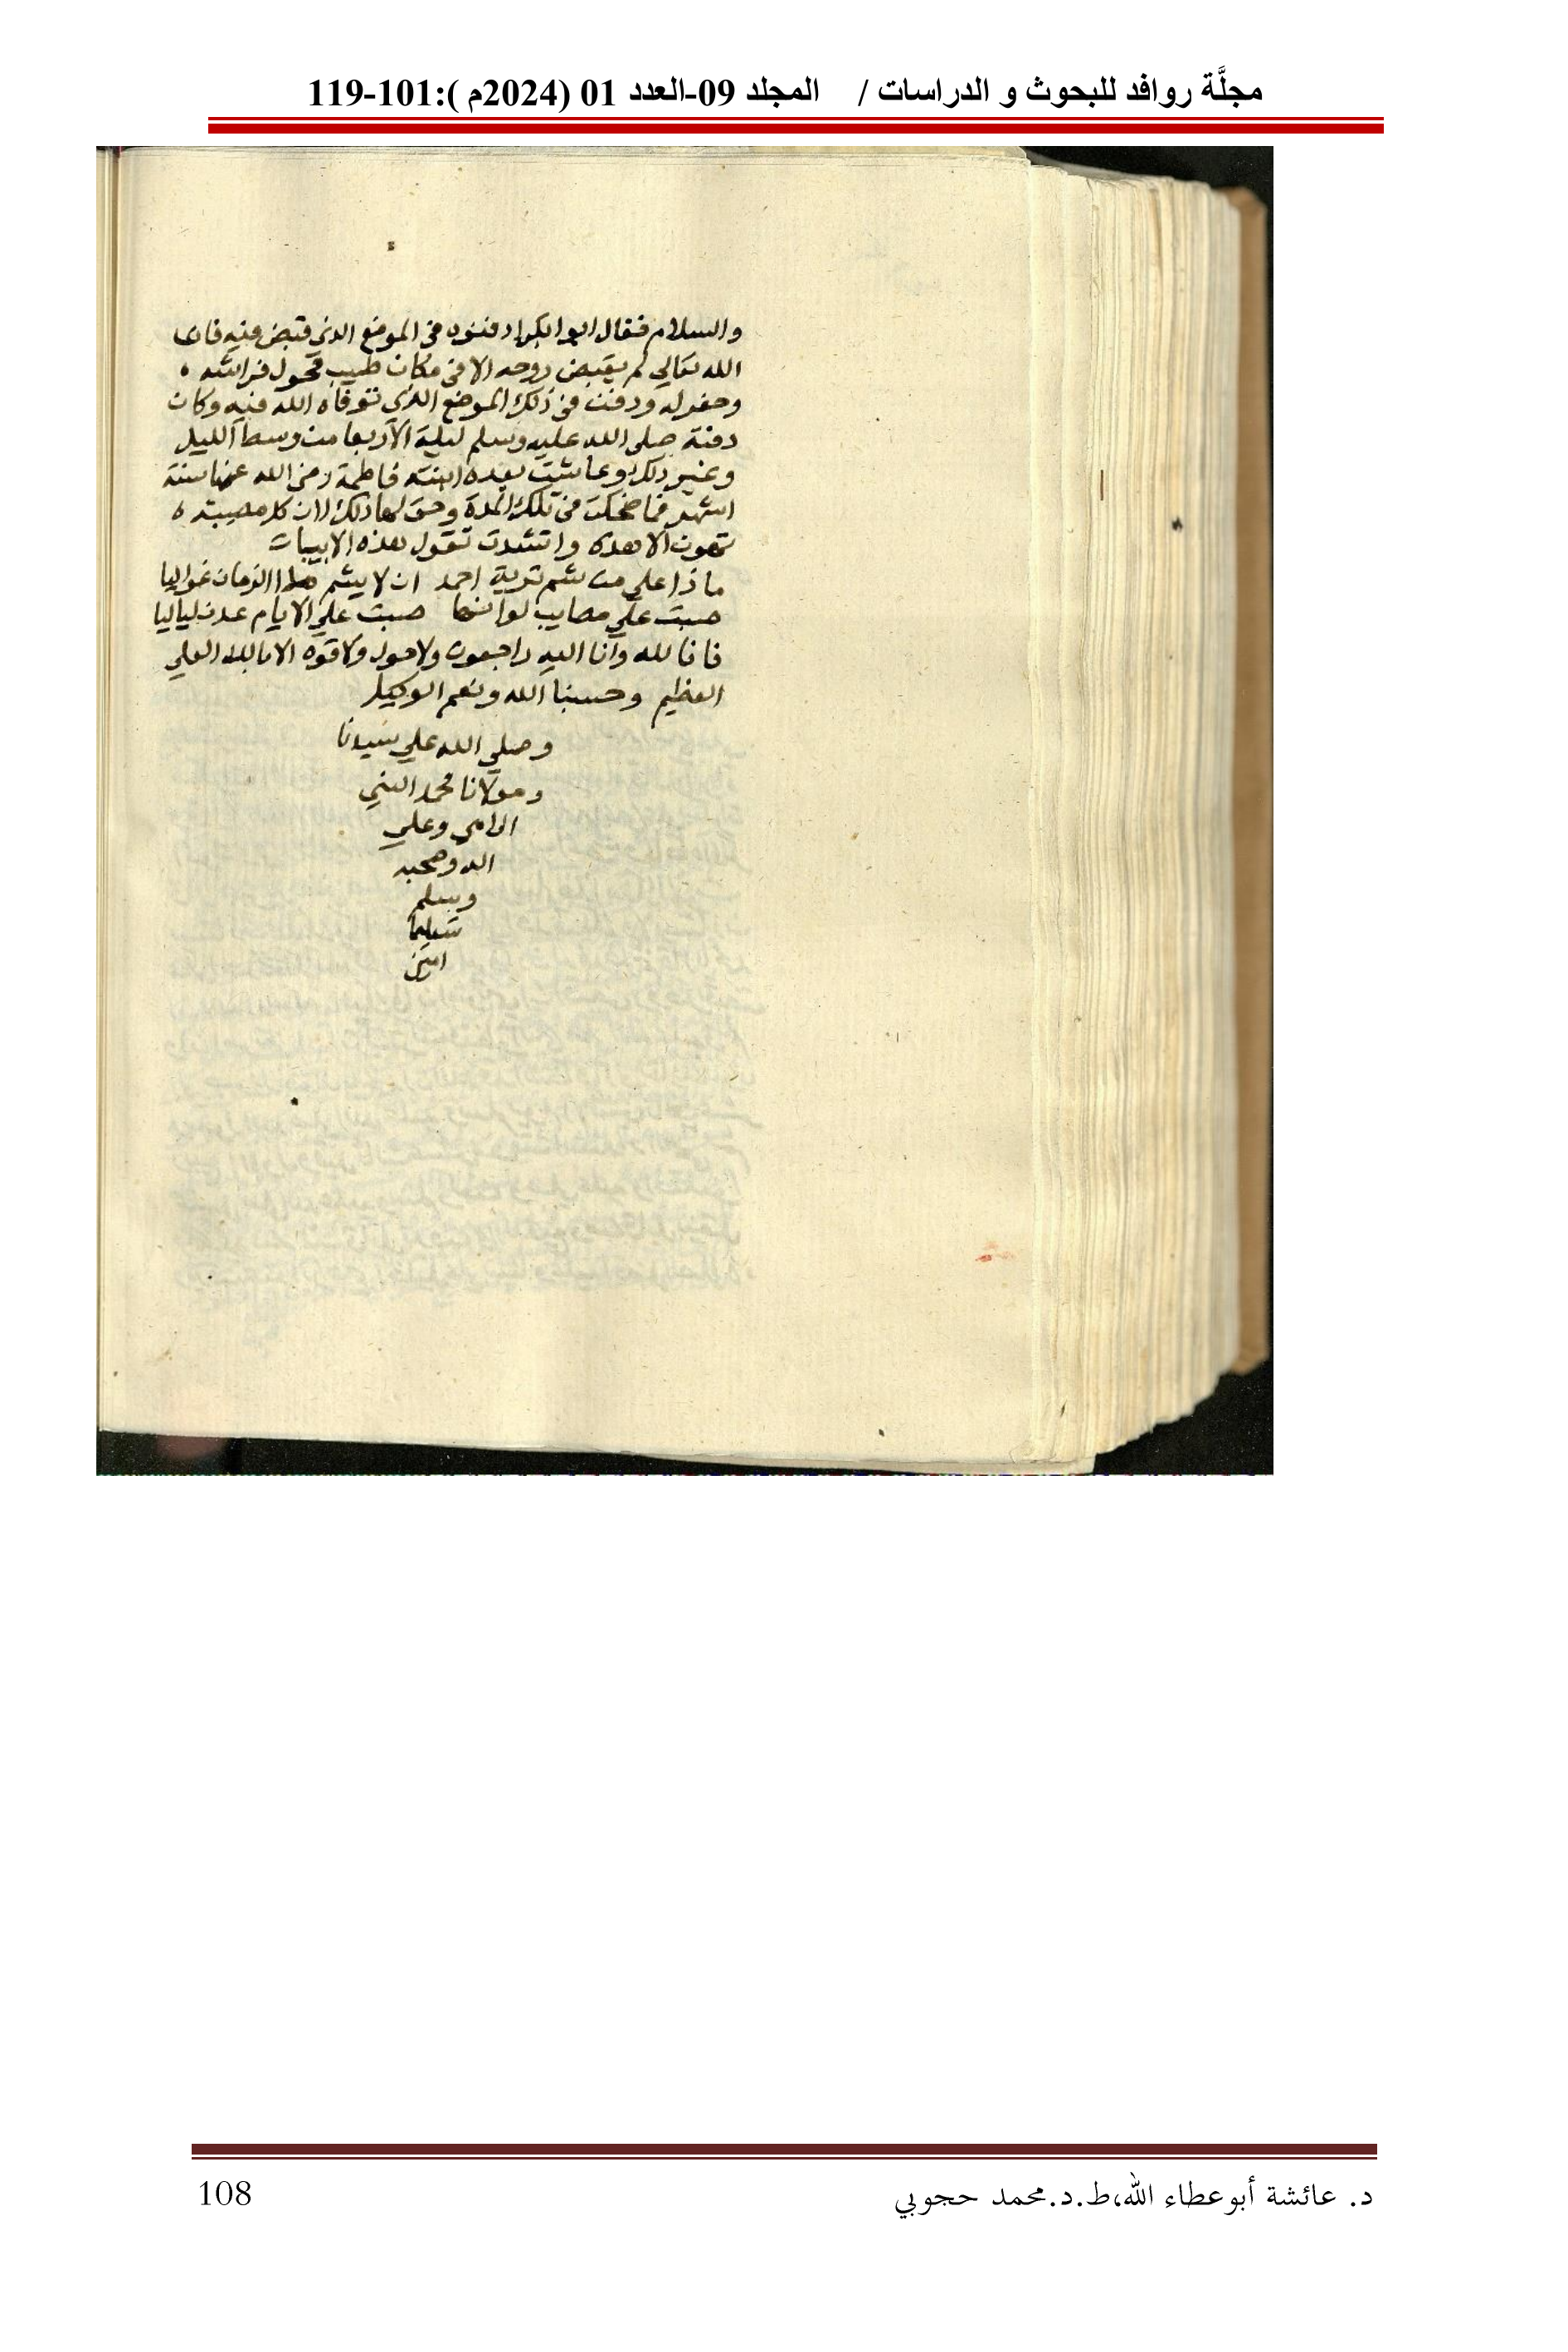 مجلَّة روافد للبحوث و الدراسات / المجلد 09-العدد 01 (2024م ):101-119
والسلام فقال ابوا بكر ادفنوه في الموضع الذي قبض فيه فان
الله تعالي لم يقبض روحه الا في مكان طيب فحول فراشه
وحفر له ودفن في ذلك الموضع الذي توفاه الله فيه وكان
دفنه صلى الله عليه وسلم ليلة الاربعا من وسط الليل
وغير ذلك وعاشت بعده ابنته فاطمة رضي الله عنها ستة
اشهر فما ضحكت في تلك المدة وحق لها ذلك لان كل مصيبة
تهون الا هذه وانشدت تقول هذه الابيات
ماذا علي من شم تربة احمد ان لا يشم مدا الزمان غواليا
صبت علي مصايب لو انها صبت علي الايام عدن لياليا
فانا لله وانا اليه راجعون ولا حول ولا قوه الا بالله العلي
العظيم وحسبنا الله ونعم الوكيل
وصلي الله علي سيدنا
ومولانا محمد النبي
الامي وعلي
اله وصحبه
وسلم
تسليما
امين
د. عائشة أبوعطاء الله،ط.د.محمد حجوبي
108